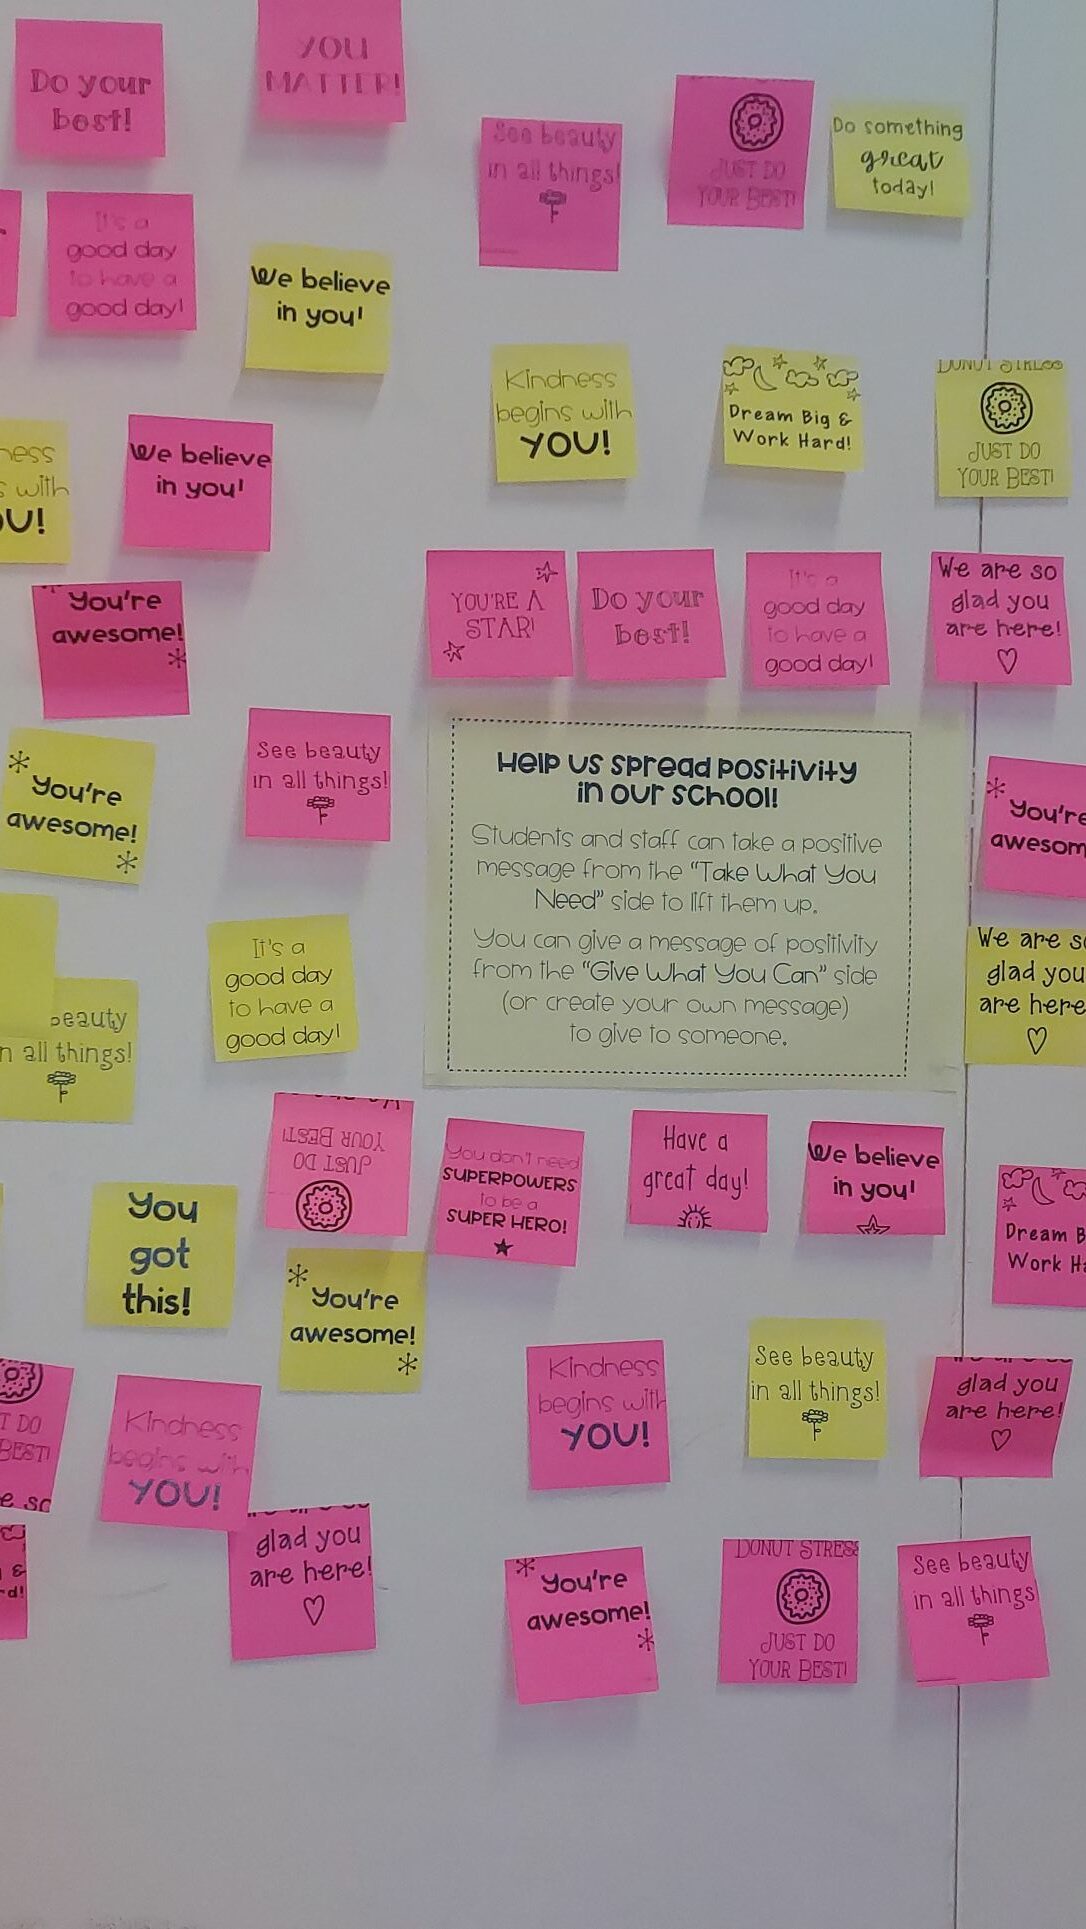 Do your
best!
YOU
MATTER!
See beauty
in all things!
JUST DO
YOUR BEST!
Do something
great
today!
It's a
good day
to have a
good day!
We believe
in you!
Kindness
begins with
YOU!
Dream Big &
Work Hard!
DONUT STRESS
JUST DO
YOUR BEST!
with
We believe
in you!
You're
awesome!
YOU'RE A
STAR!
Do your
best!
It's a
good day
to have a
good day!
We are so
glad you
are here!
You're
awesome!
See beauty
in all things!
Help us spread positivity
in our school!
Students and staff can take a positive
message from the "Take What You
Need" side to lift them up.
You can give a message of positivity
from the "Give What You Can" side
(or create your own message)
to give to someone.
You're
awesom
We are so
glad you
are here
beauty
n all things!
It's a
good day
to have a
good day!
JUST DO
YOUR BEST!
You don't need
SUPERPOWERS
to be a
SUPER HERO!
Have a
great day!
We believe
in you!
Dream B
Work Ha
You
got
this!
You're
awesome!
Kindness
begins with
YOU!
See beauty
in all things!
glad you
are here!
DO
BEST!
Kindness
begins with
YOU!
glad you
are here!
You're
awesome!
DONUT STRESS
JUST DO
YOUR BEST!
See beauty
in all things